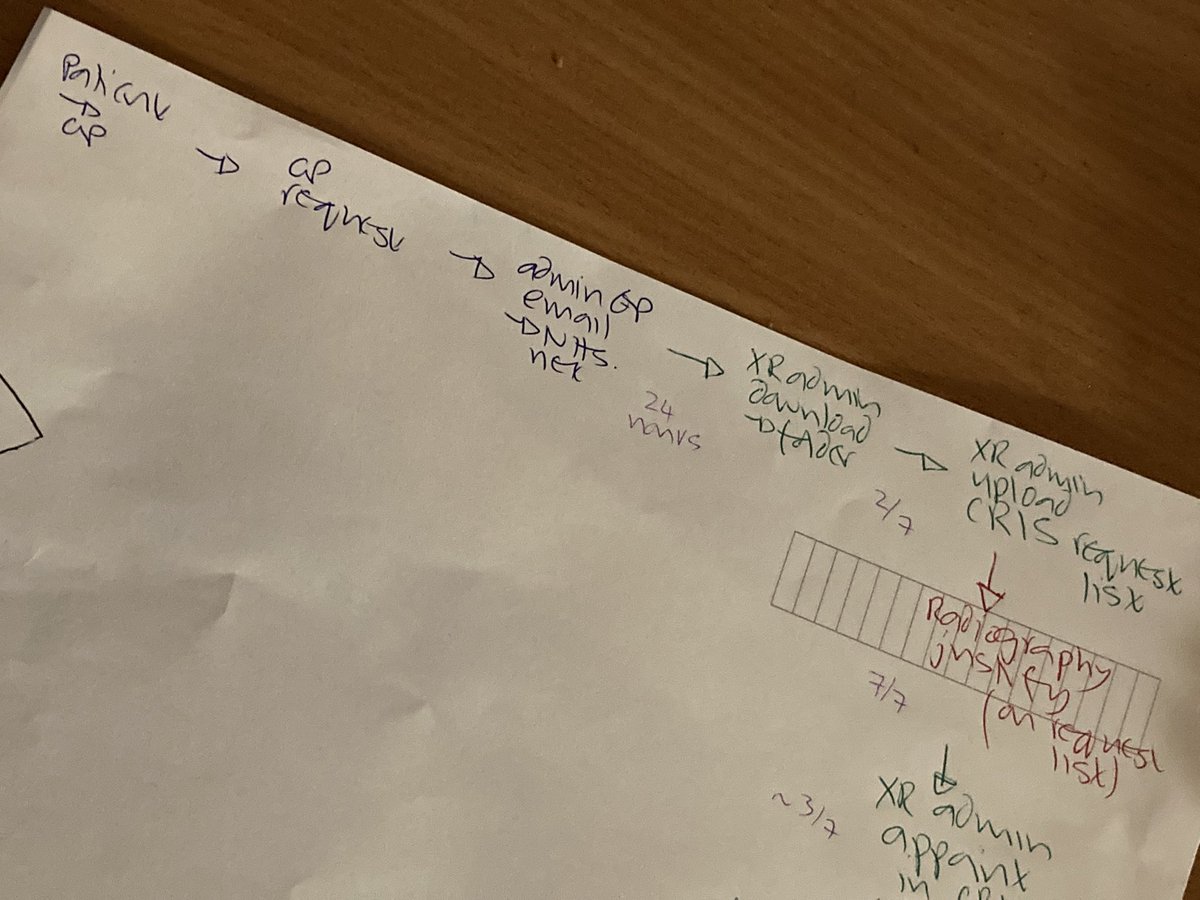 Patient
→ GP
→ GP
request
→ admin GP
email
→ NHS.
net
24
hours
→ XR admin
download
→ folder
2/7
→ XR admin
upload
CRIS request
list
Radiography
justify
(on request
list)
7/7
~3/7
XR admin
appoint
in